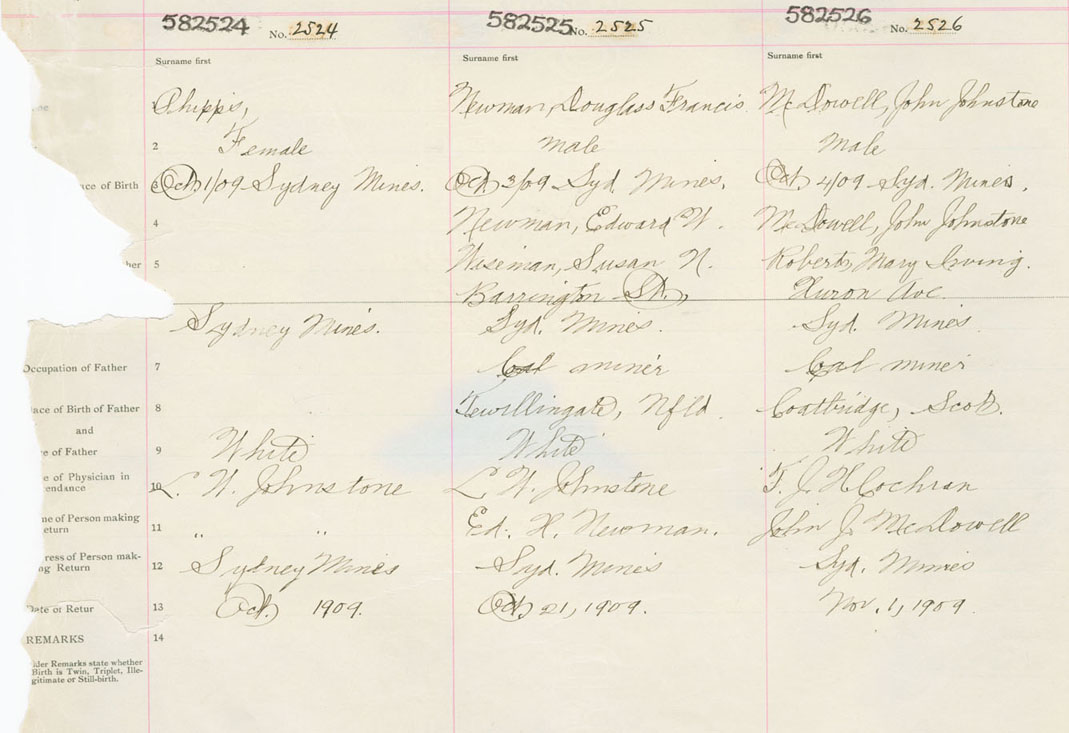 582524 No. 2524
Surname first
Phipps,
Female
Oct 1/09 Sydney Mines.
Sydney Mines.
White
L. W. Johnstone
" "
Sydney Mines
Oct. 1909.
582525 No. 2525
Surname first
Newman, Douglass Francis
male
Oct 3/09 Syd Mines.
Newman, Edward W.
Wiseman, Susan N.
Barrington St.,
Syd. Mines.
Coal miner
Twillingate, Nfld.
White
L W. Johnstone
Ed. H. Newman.
Syd. Mines
Oct 21, 1909.
582526 No. 2526
Surname first
McDowell, John Johnstone
Male
Oct 4/09 Syd. Mines.
McDowell, John Johnstone
Roberts, Mary Irving.
Huron Ave.
Syd. Mines.
Coal miner
Coatbridge, Scot.
White
T. J. H Cochran
John J. McDowell
Syd. Mines
Nov. 1, 1909.
1
2
3 ace of Birth
4
5 her
7 Occupation of Father
8 lace of Birth of Father
and
9 re of Father
10 e of Physician in
endance
11 me of Person making
eturn
12 ress of Person mak-
ng Return
13 Date or Retur
14
REMARKS
der Remarks state whether
Birth is Twin, Triplet, Ille-
gitimate or Still-birth.